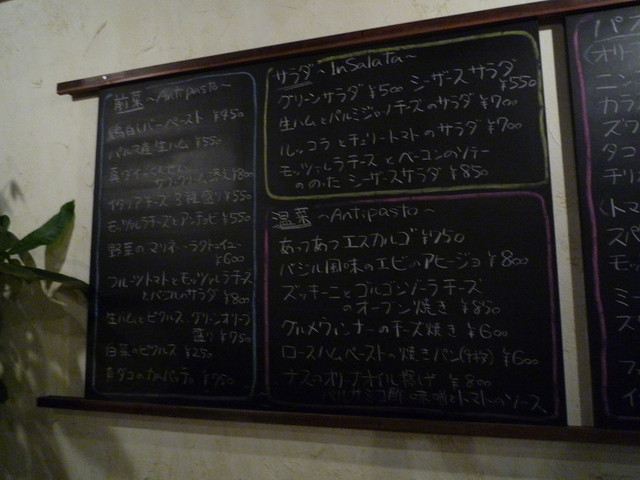 前菜 ~Antipasto~
鶏白レバーペースト ¥450
パルマ産生ハム ¥550
真ダイの
添え ¥800
イタリアチーズ3種盛り ¥550
モッツァレラチーズとアンチョビ ¥550
野菜のマリネ ~ラタトゥイユ~
¥600
フルーツトマトとモッツァレラチーズ
とバジルのサラダ ¥800
生ハムとピクルス グリーンオリーブ
盛り ¥750
白菜のピクルス ¥250
真ダコのカルパッチョ ¥750
サラダ ~InSalata~
グリーンサラダ ¥500 シーザースサラダ
¥550
生ハムとパルミジャーノチーズのサラダ ¥700
ルッコラとチェリートマトのサラダ ¥700
モッツァレラチーズとベーコンのソテー
ののった シーザースサラダ ¥850
温菜 ~Antipasto~
あっつあつエスカルゴ ¥750
バジル風味のエビのアヒージョ ¥800
ズッキーニとゴルゴンゾーラチーズ
のオーブン焼き ¥850
グルメウィンナーのチーズ焼き ¥600
ロースハムペーストの焼きパン(4枚) ¥600
ナスのオリーブオイル揚げ ¥800
バルサミコ酢 味噌とトマトのソース
パ
(オリ
ニン
カラ
ズワ
タコ
チリ
(トマ
スペ
モッ